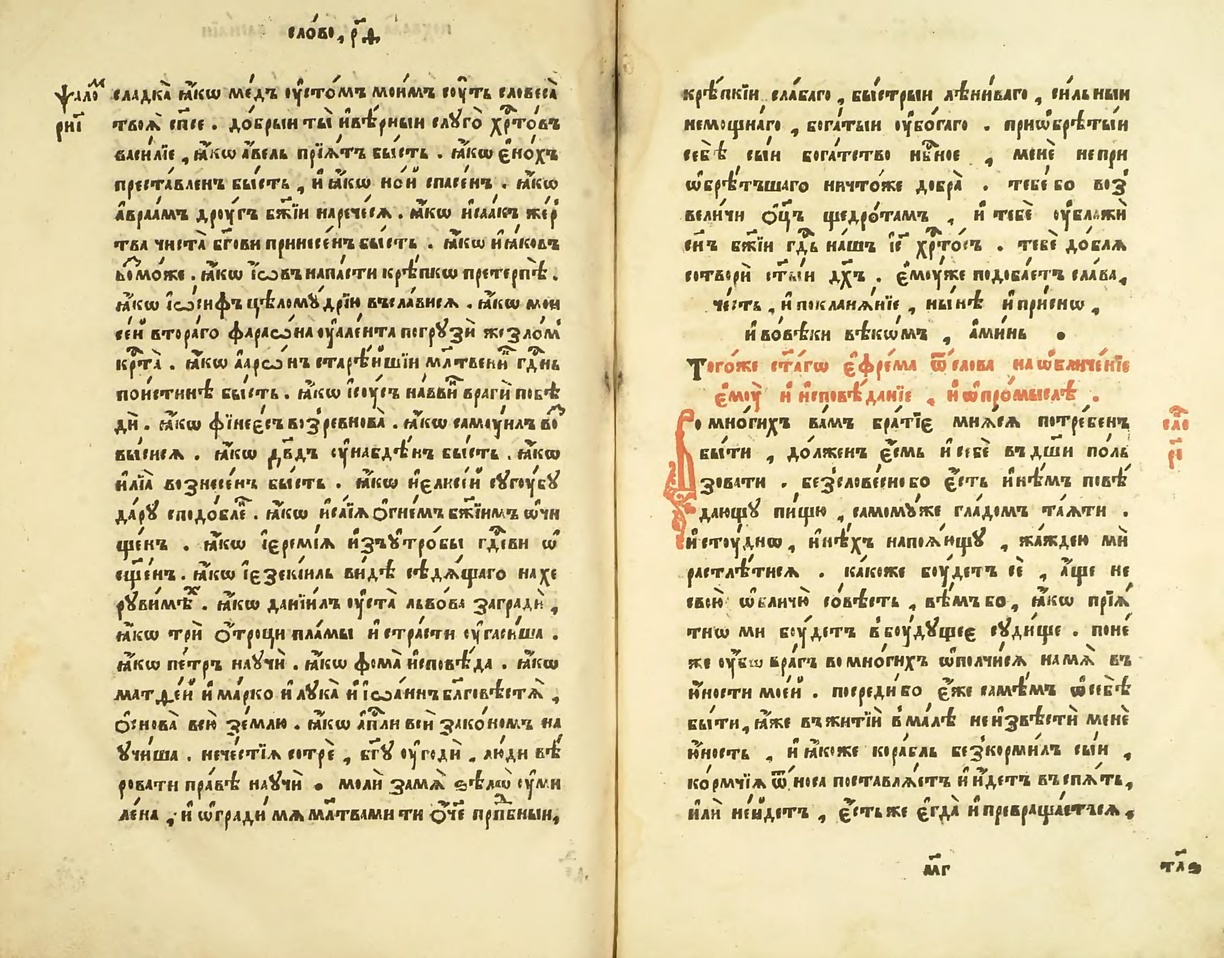 сло́во, р҃д,
ѱало́м
рн҃і
сладка̀ ꙗ҆́кѡ ме́дъ оу҆сто́мъ мои́мъ соу́ть словеса̀
твоѧ̀ сп҃се . до́брыи ты̀ и҆ вѣ́рныи слꙋго̀ хрⷭ҇то́въ
васи́лїе , ꙗ҆́кѡ а҆́вель прїѧ́тъ бы́сть . ꙗ҆́кѡ є҆но́хъ
преста́вленъ бы́сть , и҆ ꙗ҆́кѡ но́и спасе́нъ . ꙗ҆́кѡ
а҆враа́мъ дрꙋ́гъ бж҃їи нарече́сѧ . ꙗ҆́кѡ и҆саа́къ же́р
тва чиста̀ бг҃ови принесе́нъ бы́сть . ꙗ҆́кѡ и҆ꙗ́ковъ
въⷥмо́же . ꙗ҆́кѡ і҆́ѡвъ напа́сти крѣ́пкѡ претерпѣ̀ .
ꙗ҆́кѡ і҆ѡ́сифъ цѣломꙋ́дрїи въсла́висѧ . ꙗ҆́кѡ мои
се́и втора́го фараѡ́на оу҆але́нта погрꙋзѝ же зло́м
крⷭ҇та̀ . ꙗ҆́кѡ а҆арѡ́нъ старѣ́ишїи мл҃твеникъ гдⷭ҇нь
пои́стинѣ бы́сть . ꙗ҆́кѡ і҆сꙋ́съ на́ввин врагѝ побѣ
дѝ . ꙗ҆́кѡ фїнее́съ возревнова̀ . ꙗ҆́кѡ самꙋи́лъ воⷥ
вы́сисѧ . ꙗ҆́кѡ дв҃дъ сꙋнабдѣ́нъ бы́сть . ꙗ҆́кѡ
и҆лїа̀ вознесе́нъ бы́сть . ꙗ҆́кѡ и҆елисе́и сꙋгꙋ́бꙋ
да́рꙋ сподо́блеⷩ . ꙗ҆́кѡ и҆са́їѧ ѻ҆гне́мъ бж҃їимъ ѡ҆чи
ще́нъ . ꙗ҆́кѡ і҆ереми́ѧ и҆зꙋтро́бы гдⷭ҇еви ѡ҆
сще́нъ . ꙗ҆́кѡ і҆езекі́иль ви́дѣ сѣдѧ́щаго на хе
рꙋви́мѣⷯ . ꙗ҆́кѡ данїи́лъ оу҆ста̀ льво́ва заградѝ ,
ꙗ҆́кѡ трѝ ѻ҆́троци пла́мы и҆ стра́сти оу҆гаси́ша .
ꙗ҆́кѡ пе́тръ наꙋчѝ . ꙗ҆́кѡ фома̀ и҆сповѣ́да . ꙗ҆́кѡ
матѳе́и и҆ ма́рко и҆ лꙋка̀ и҆ і҆ѡа́ннъ бл҃говѣстѧ̀ ,
ѻ҆снова̀ всю̀ зе́млю . ꙗ҆́кѡ а҆пⷭ҇ли всѝ зако́номъ на
ꙋчи́ша . нече́стїѧ сотрѐ , бг҃ꙋ оу҆годѝ , лю́ди вѣ́
ровати пра́вѣ наꙋчѝ . молѝ за мѧ̀ ѕѣлѡ̀ сꙋ́ми
ле́на , и҆ ѡ҆градѝ мѧ мл҃твами ти ѻ҆́ч҃е прпⷣбныи,
крѣ́пкїи сла́баго , бы́стрыи лѣни́ваго , си́льныи
немощна́го , бога́тыи оу҆бо́гаго . приѡбрѣ́тыи
себѣ̀ сы́и бога́тство нбⷭ҇ное , менѐ не при
ѡ҆брѣ́тъшаго ничто́же добра̀ . тебе́ бо воз
вели́чи ѻ҆ц҃ъ щедро́тамъ , и҆ тебѐ оу҆блажѝ
сн҃ъ бж҃їи гдⷭ҇ь на́шъ і҆с҃ хрⷭ҇то́съ . тебѐ до́блѧ
сотворѝ ст҃ы́и дх҃ъ . є҆мꙋ́же подоба́етъ сла́ва,
че́сть , и҆ поклонѧ́нїе , ны́нѣ и҆ при́снѡ ,
и҆ во вѣ́ки вѣкѡ́мъ , а҆ми́нь .
Того́же ст҃а́гѡ є҆фре́ма ѿ сло́ва на ѡ҆бличе́нїе
є҆мꙋ̀ и҆ и҆сповѣ́данїе , и҆ ѡ҆ про́мыслѣ .
Со мно́гихъ ва́мъ бра́тїе мнѧ́сѧ потре́бенъ
бы́ти , до́лженъ є҆́смь и҆ себѐ въ дш҃и по́ль
зовати . безслове́сно бо є҆́сть и҆нѣ́мъ повѣ́
дающꙋ пи́щю , самомꙋ́же гла́домъ та́ѧти .
и҆ стꙋ́днѡ , и҆нѣ́хъ напоѧ́ющꙋ , жа́ждею мѝ
растлѣ́тисѧ . ка́коже бꙋ́детъ сѐ , а҆́ще не
свою̀ ѡ҆бличю̀ со́вѣсть , вѣ́мъ бо , ꙗ҆́кѡ прїѧ́
тнѡ ми бꙋ́детъ в бꙋ́дꙋщее сꙋди́ще . поне́
же оу҆́бѡ вра́гъ во мно́гихъ ѡ҆полчи́сѧ на мѧ̀ въ
ю҆́ности мое́и . посреди́ бо є҆́же самѣ́мъ ѿ себѣ̀
бы́ти, ꙗ҆́же въ житїѝ в ма́лѣ не и҆звѣстѝ менѐ
ю҆́ность , и҆ ꙗ҆́коже кора́бль без корми́лъ сы́и ,
ко́рмчїѧ ѿ но́са поставлѧ́етъ и҆ и҆́детъ въспѧ́ть,
и҆лѝ не и҆́детъ , є҆́сть же є҆гда̀ и҆ превраща́етъсѧ,
сло
рє҃
м҃г
тлѕ